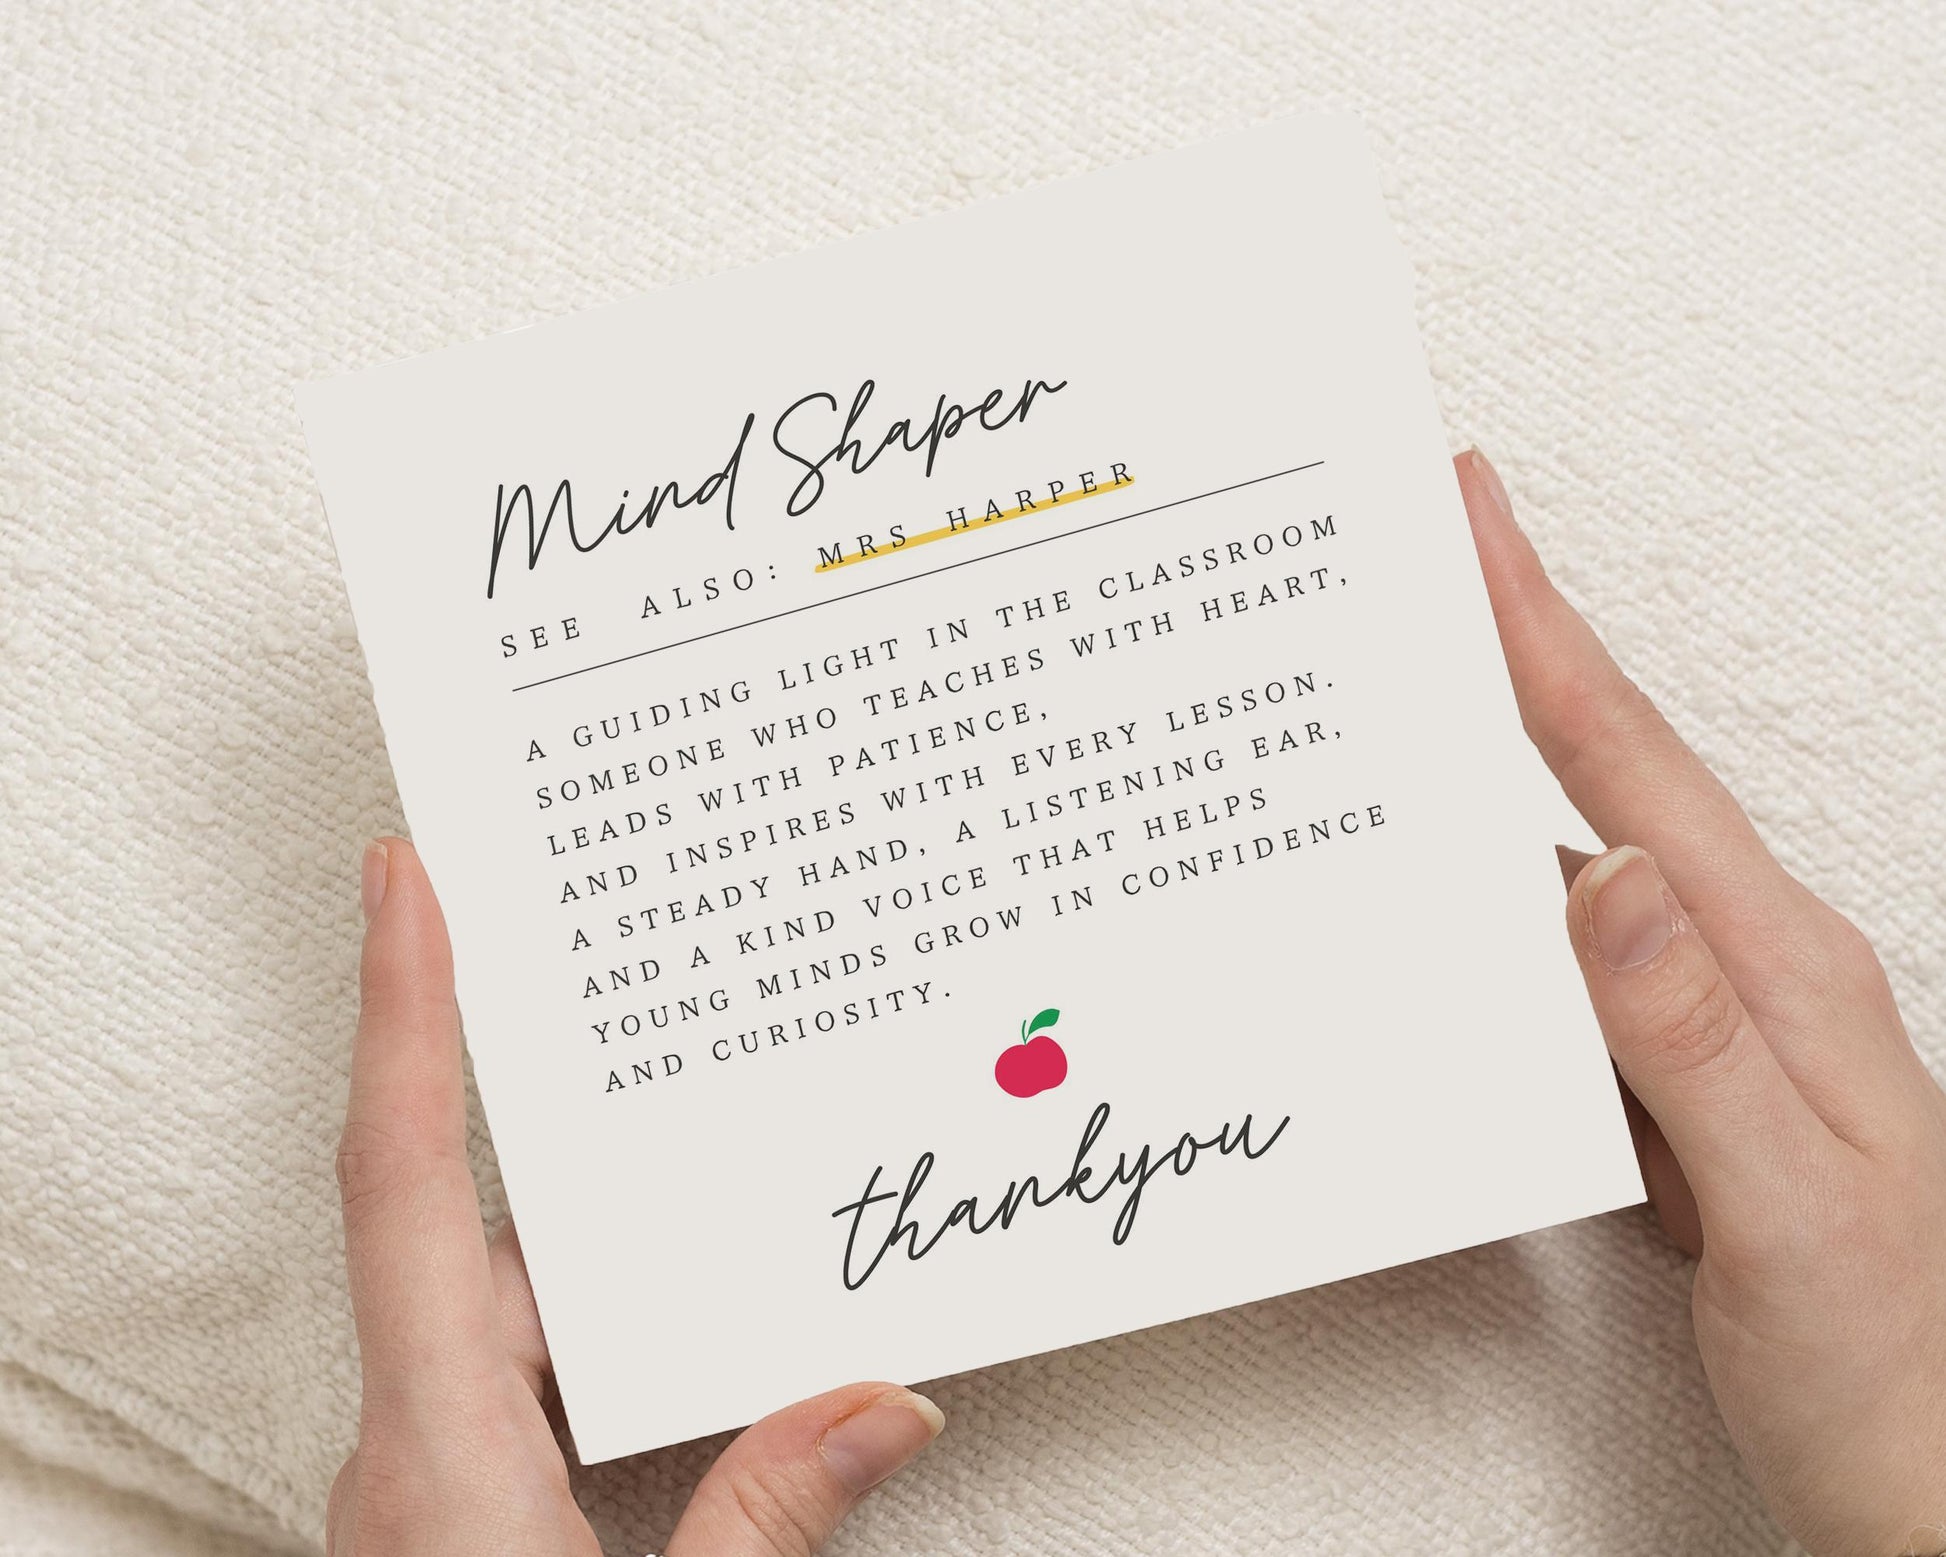 Mind Shaper
SEE ALSO: MRS HARPER
A GUIDING LIGHT IN THE CLASSROOM
SOMEONE WHO TEACHES WITH HEART,
LEADS WITH PATIENCE,
AND INSPIRES WITH EVERY LESSON.
A STEADY HAND, A LISTENING EAR,
AND A KIND VOICE THAT HELPS
YOUNG MINDS GROW IN CONFIDENCE
AND CURIOSITY.
thankyou